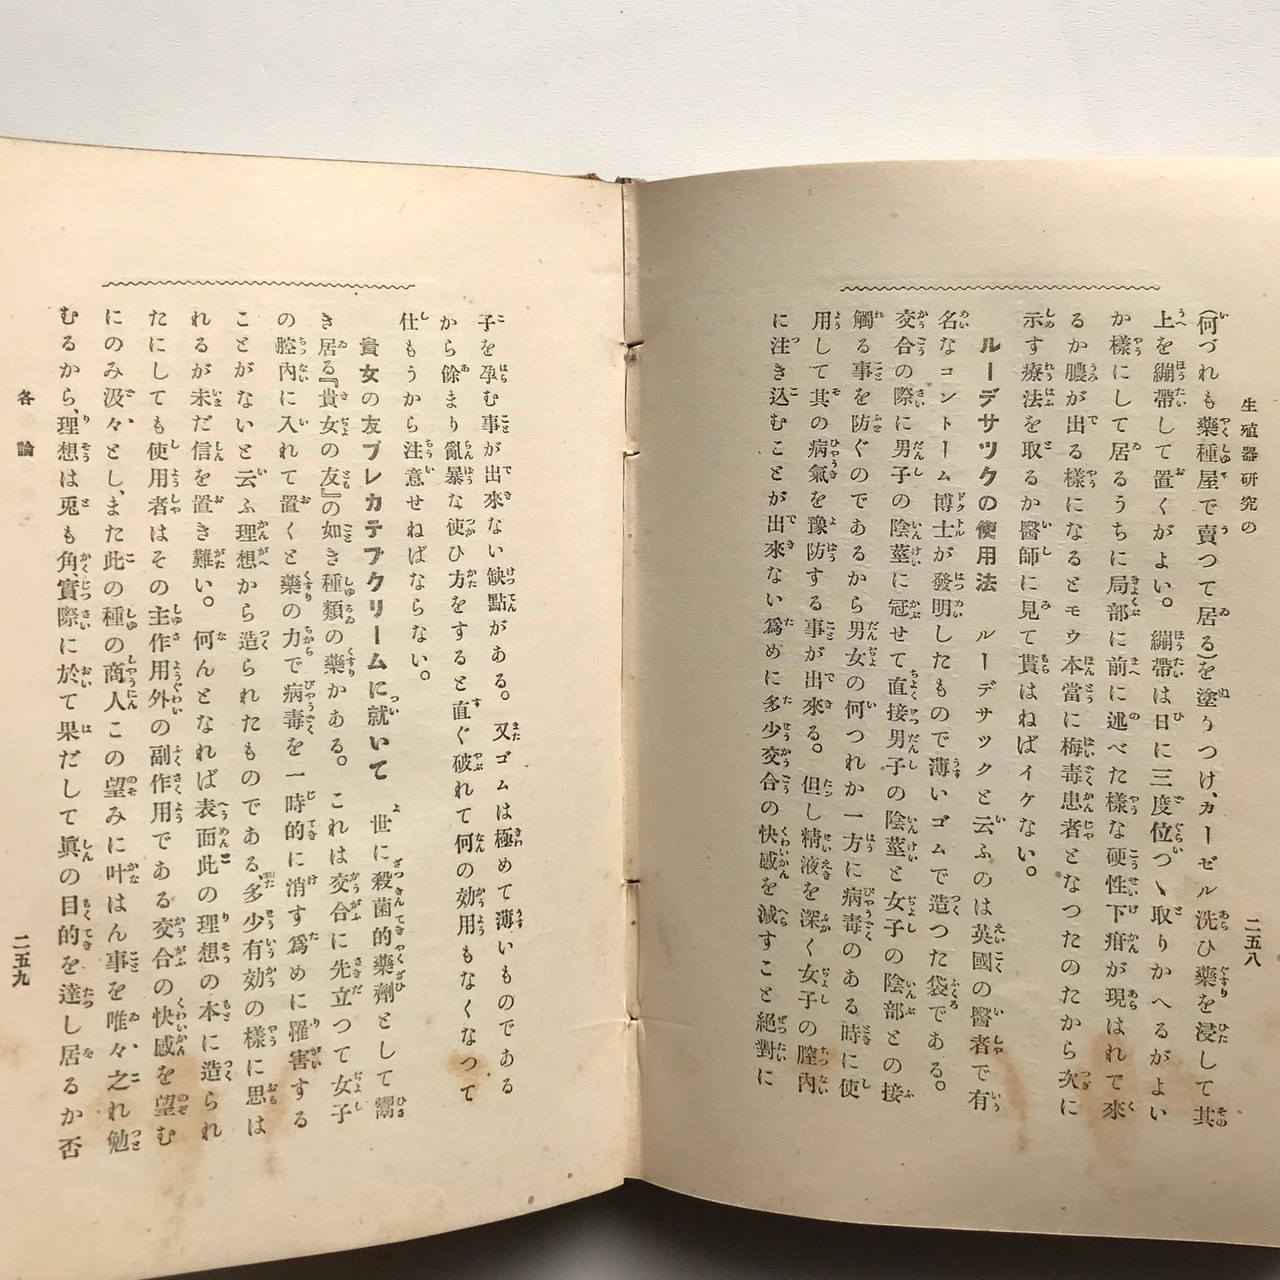 生殖器研究の
二五八
(何づれも藥種屋で賣つて居る)を塗りつけ、ガーゼル洗ひ藥を浸して其
上を繃帶して置くがよい。繃帶は日に三度位づゝ取りかへるがよい
か樣にして居るうちに局部に前に述べた樣な硬性下疳が現はれて來
るか膿が出る樣になるとモウ本當に梅毒患者となつたのだから次に
示す療法を取るか醫師に見て貰はねばイケない。
ルーデサツクの使用法 ルーデサックと云ふのは英國の醫者で有
名なコントーム博士が發明したもので薄いゴムで造つた袋である。
交合の際に男子の陰莖に冠せて直接男子の陰莖と女子の陰部との接
觸る事を防ぐのであるから男女の何つれか一方に病毒のある時に使
用して其の病氣を豫防する事が出來る。但し精液を深く女子の膣內
に注き込むことが出來ない爲めに多少交合の快感を減すこと絕對に
子を孕む事が出來ない缺點がある。又ゴムは極めて薄いものである
から餘まり亂暴な使ひ方をすると直ぐ破れて何の効用もなくなつて
仕もうから注意せねばならない。
貴女の友プレカテブクリームに就いて 世に殺菌的藥劑として鬻
き居る『貴女の友』の如き種類の藥かある。これは交合に先立つて女子
の膣內に入れて置くと藥の力で病毒を一時的に消す爲めに罹害する
ことがないと云ふ理想から造られたものである、多少有効の樣に思は
れるが未だ信を置き難い。何んとなれば表面此の理想の本に造られ
たにしても使用者はその主作用外の副作用である交合の快感を望む
にのみ汲々とし、また此の種の商人この望みに叶はん事を唯々之れ勉
むるから、理想は兎も角、實際に於て果だして眞の目的を達し居るか否
各論
二五九